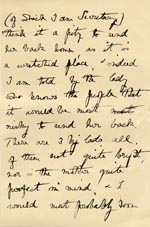 (of which I am Secretary)
think it a pity to send
her back home as it is
a wretched place, & indeed
I am told by the lady
who knows the people that
it would be most
risky to send her back
There are 3 lads all
of them not quite bright,
nor is the mother quite
perfect in mind, & I
would most probably soon